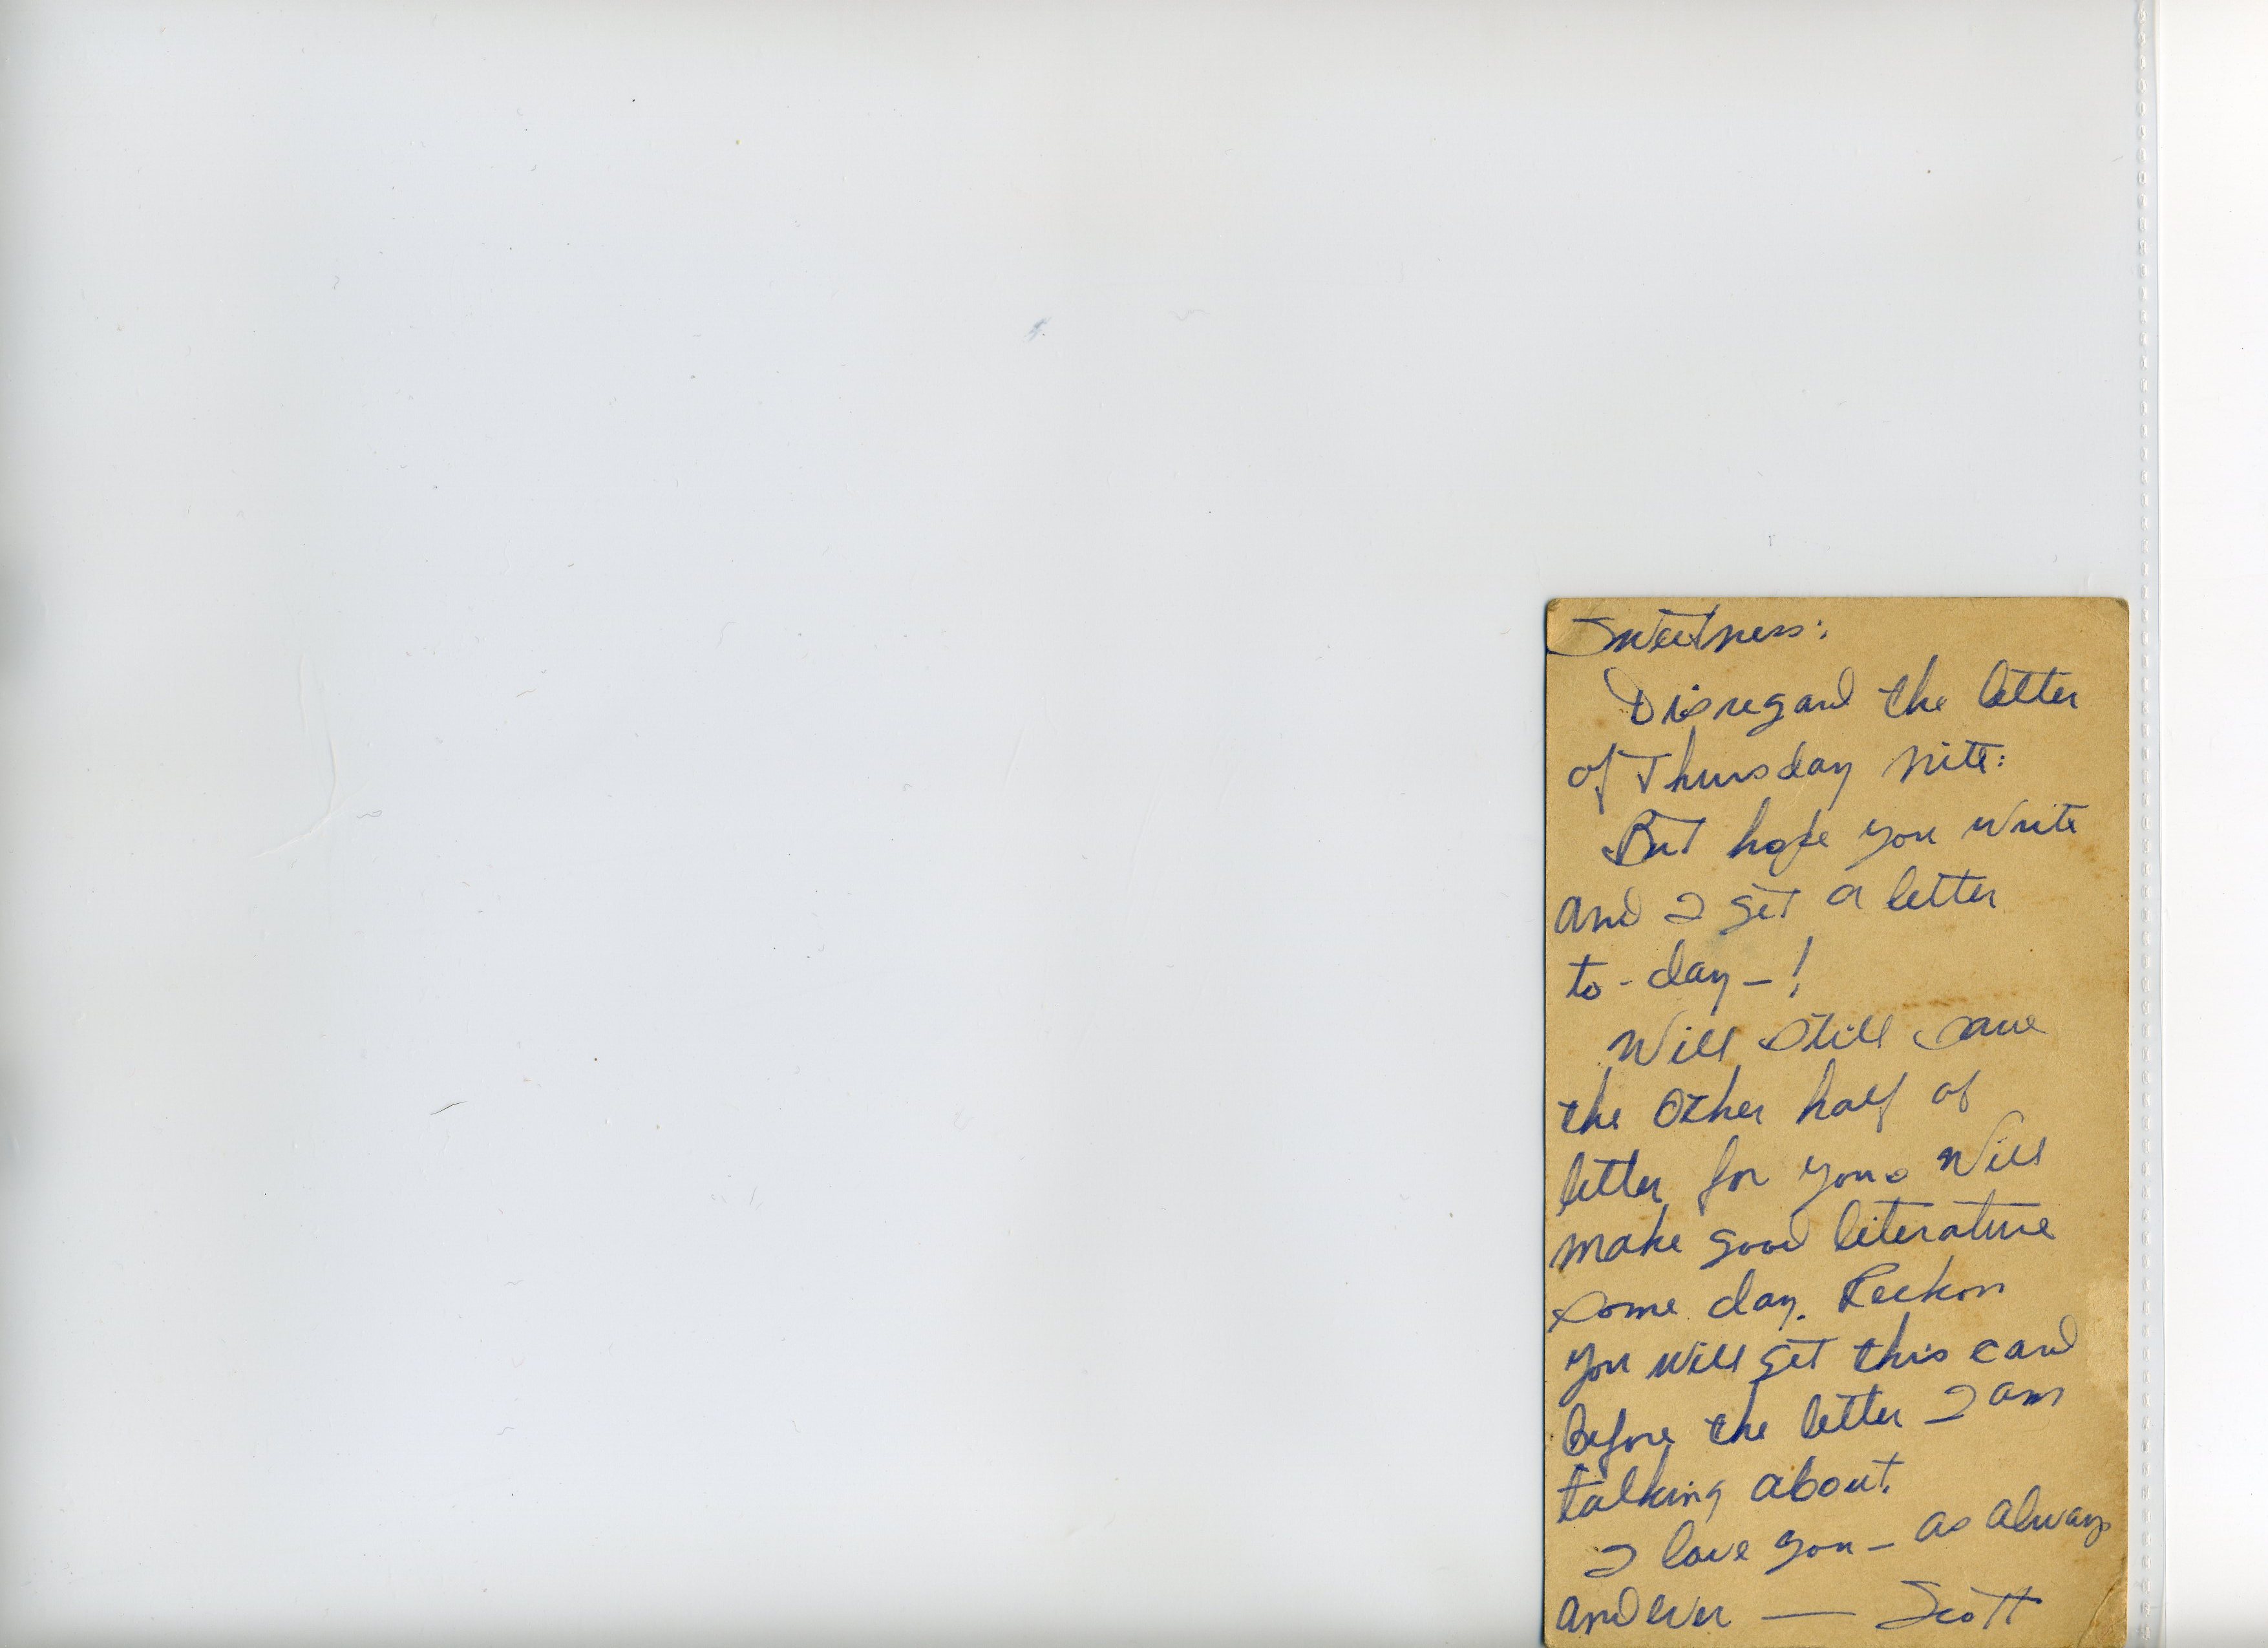 Sweetness:
Disregard the letter
of Thursday nite:
But hope you write
and I get a letter
to-day—!
Will still save
the other half of
letter for you. Will
make good literature
some day. Reckon
you will get this card
before the letter I am
talking about.
I love you— as always
and ever — Scott